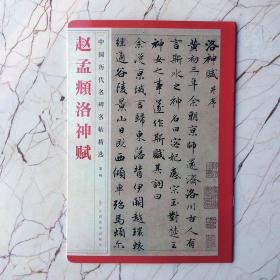 中国历代名碑名帖精选
赵孟頫洛神赋
洛神賦 并序
黄初三年余朝京師還濟洛川古人有
言斯水之神名曰宓妃感宋玉對楚王
神女之事遂作斯賦其詞曰
余從京域言歸東藩背伊闕越轘轅
經通谷陵景山日既西傾車殆馬煩尓